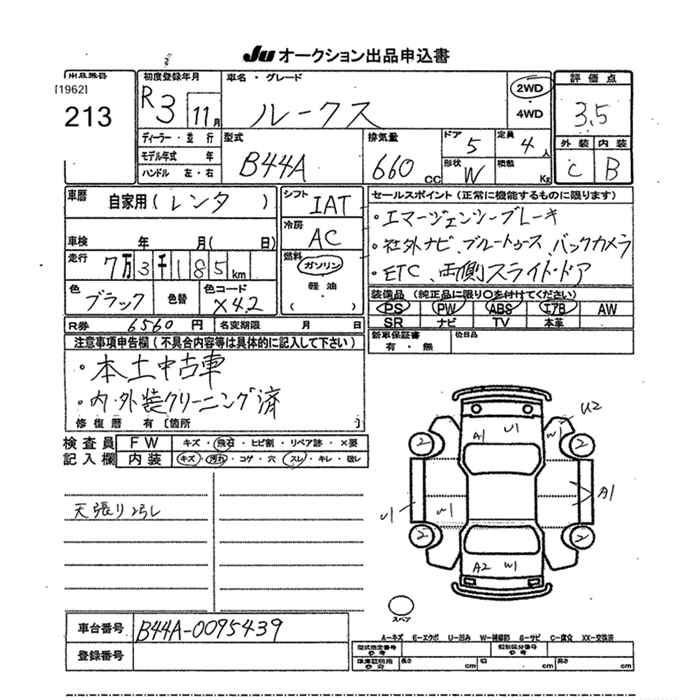 Ju オークション出品申込書
出品番号 初度登録年月 車名・グレード 評価点
[1962]
213
R3 11月 ルークス 2WD 4WD 3.5
ディーラー・並行 型式 排気量 ドア 定員 外装 内装
モデル年式 年 B44A 660 CC 5 4人 C B
ハンドル 左・右 形状 W 積載 Kg
車歴 自家用(レンタ) シフト IAT セールスポイント(正常に機能するものに限ります)
車検 年 月(日) 冷房 AC ・エマージェンシーブレーキ
走行 7万3千185km 燃料 ガソリン 軽油 ( ) ・社外ナビ、ブルートゥース、バックカメラ
色 ブラック 色替 色コード X42 ・ETC、両側スライド・ドア
装備品(純正品に限り○を付けてください)
PS PW ABS エアB AW
R券 6560円 名変期限 月 日 SR ナビ TV 本革
注意事項申告欄(不具合内容等は具体的に記入して下さい) 新車保証書 有・無 後日品
・本土中古車
・内・外装クリーニング済
修復歴 有〔箇所 〕
検査員 FW キズ・飛石・ヒビ割・リペア跡・×要
記入欄 内装 キズ・汚れ・コゲ・穴・スレ・キレ・破レ
天張りヨゴレ
A1 U1 W U2
2 2
U1 W1 A1
2 2
A2 W1
スペア
車台番号 B44A-0095439
A-キズ E-エクボ U-凹み W-補修跡 S-サビ C-腐食 XX-交換済
登録番号 型式指定番号 類別区分番号
長さ cm 幅 cm 高さ cm